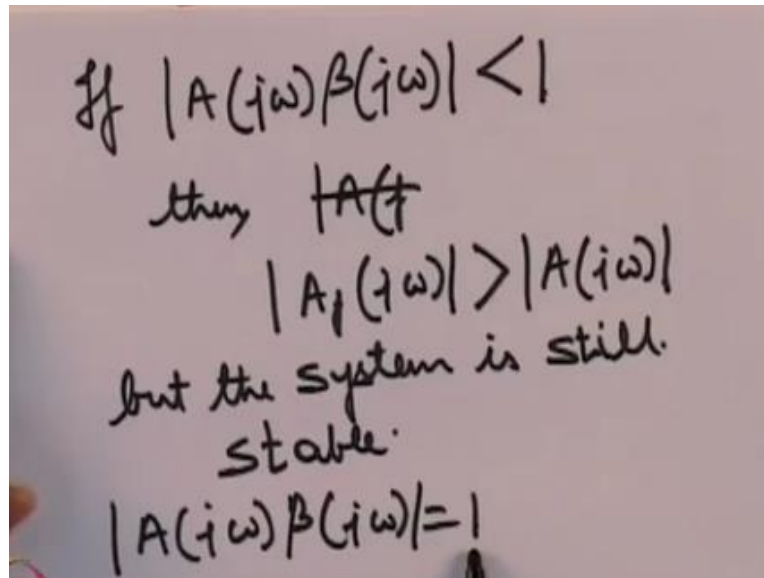 If |A(jω)β(jω)| < 1
then, |A(j
|A₁(jω)| > |A(jω)|
but the system is still.
stable.
|A(jω)β(jω)| = 1